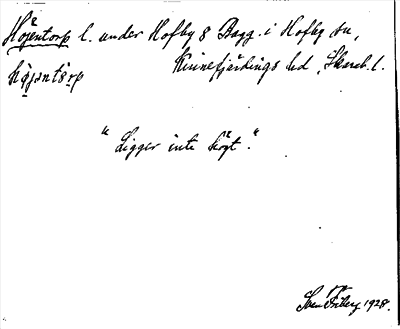 Höjentorp l. under Hofby 8 Bagg. i Hofby sn,
Kinnefjärdings hd, Skarab. l.
höjəntårp
"Ligger inte högt."
Sven Friberg 1928.